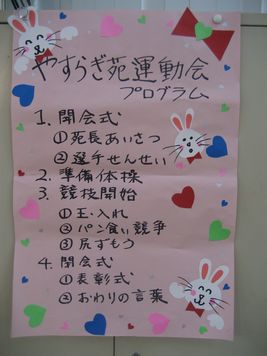 やすらぎ苑運動会
プログラム
1. 開会式
①苑長あいさつ
②選手せんせい
2. 準備体操
3. 競技開始
①玉・入れ
②パン食い競争
③尻ずもう
4. 閉会式
①表彰式
②おわりの言葉